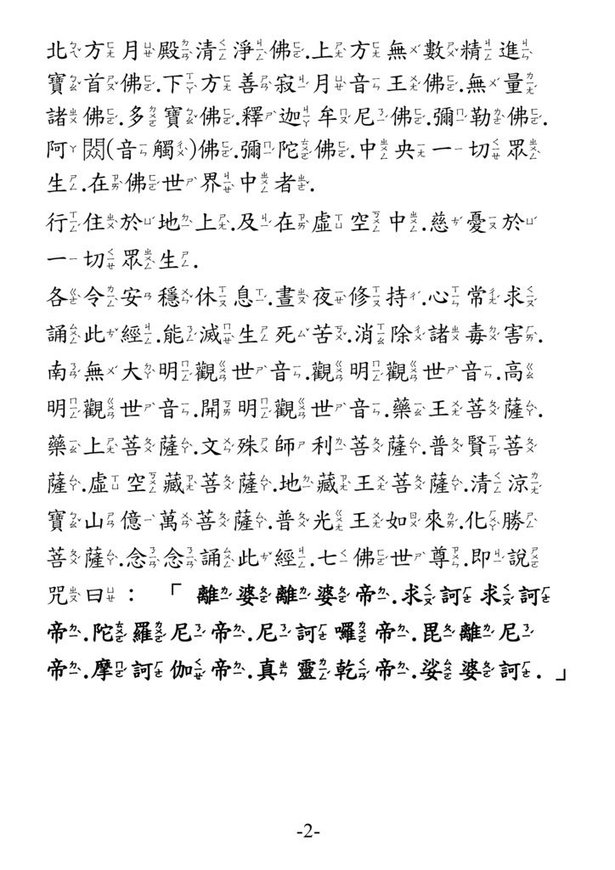 北方月殿清淨佛.上方無數精進
寶首佛.下方善寂月音王佛.無量
諸佛.多寶佛.釋迦牟尼佛.彌勒佛.
阿閦(音觸)佛.彌陀佛.中央一切眾
生.在佛世界中者.
行住於地上.及在虛空中.慈憂於
一切眾生.
各令安穩休息.晝夜修持.心常求
誦此經.能滅生死苦.消除諸毒害.
南無大明觀世音.觀明觀世音.高
明觀世音.開明觀世音.藥王菩薩.
藥上菩薩.文殊師利菩薩.普賢菩
薩.虛空藏菩薩.地藏王菩薩.清涼
寶山億萬菩薩.普光王如來.化勝
菩薩.念念誦此經.七佛世尊.即說
咒曰：「離婆離婆帝.求訶求訶
帝.陀羅尼帝.尼訶囉帝.毘離尼
帝.摩訶伽帝.真靈乾帝.娑婆訶.」
-2-